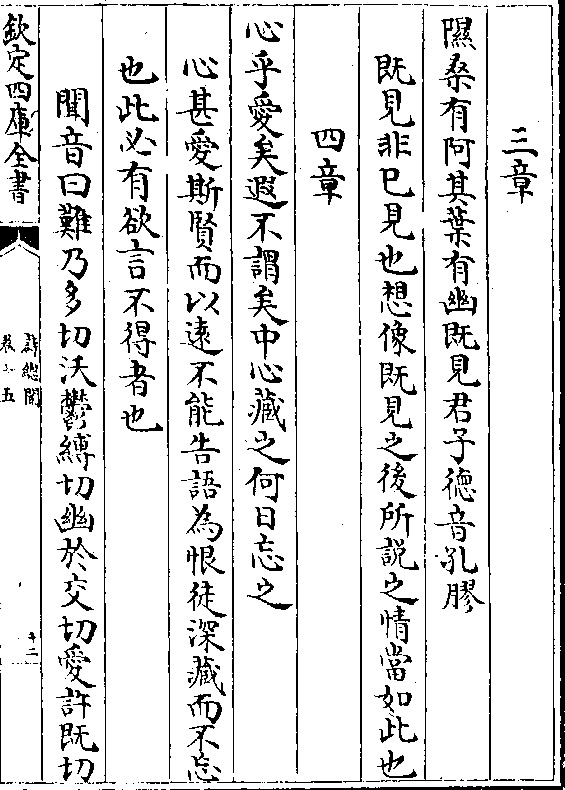 三章
隰桑有阿其葉有幽既見君子德音孔膠
既見非已見也想像既見之後所說之情當如此也
四章
心乎愛矣遐不謂矣中心藏之何日忘之
心甚愛斯賢而以遠不能告語為恨徒深藏而不忘
也此必有欲言不得者也
聞音曰難乃多切沃鬱縛切幽於交切愛許既切
欽定四庫全書
詩總聞
卷十五
十二